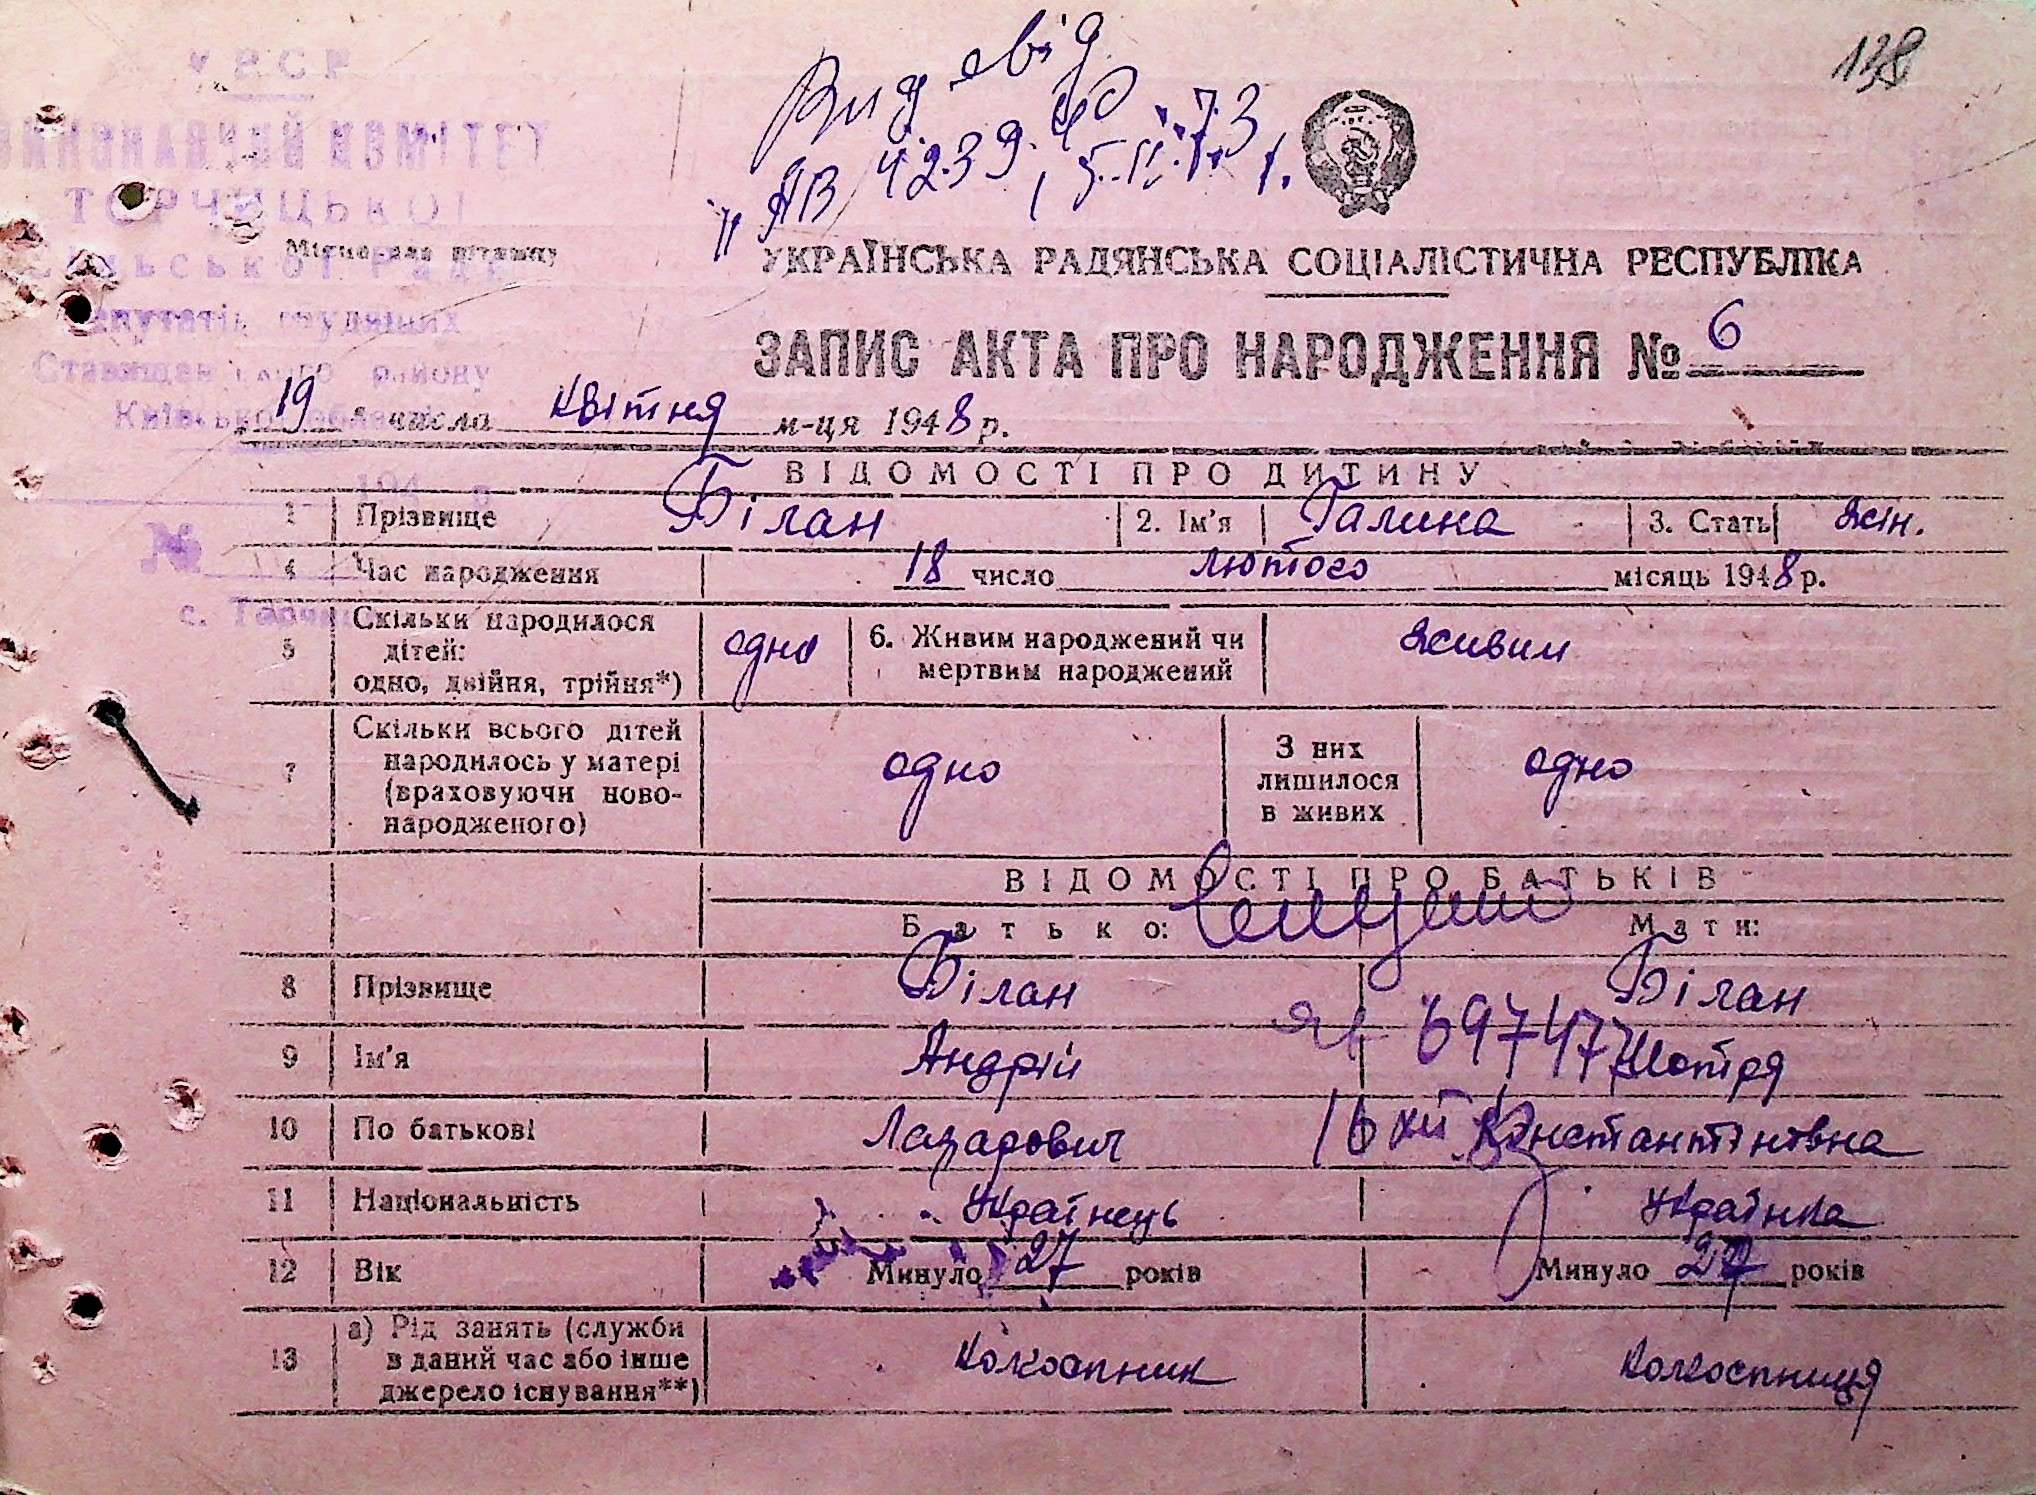 138
УРСР
ВИКОНАВЧИЙ КОМІТЕТ
ТОРЧИЦЬКОЇ
Сільської Ради
депутатів трудящих
Ставищенського району
Київської області
194 р.
№
с. Торчиця
Місце для штампу
УКРАЇНСЬКА РАДЯНСЬКА СОЦІАЛІСТИЧНА РЕСПУБЛІКА
ЗАПИС АКТА ПРО НАРОДЖЕННЯ № 6
19 числа квітня м-ця 1948 р.
ВІДОМОСТІ ПРО ДИТИНУ
1 Прізвище Білан 2. Ім'я Галина 3. Стать жін.
4 Час народження 18 число лютого місяць 1948 р.
5 Скільки народилося дітей: одно, двійня, трійня*) одно 6. Живим народжений чи мертвим народжений живим
7 Скільки всього дітей народилось у матері (враховуючи новонародженого) одно З них лишилося в живих одно
ВІДОМОСТІ ПРО БАТЬКІВ
Батько: Мати:
8 Прізвище Білан Білан
9 Ім'я Андрій Мотря
10 По батькові Лазарович Константіновна
11 Національність Українець Українка
12 Вік Минуло 27 років Минуло 27 років
13 а) Рід занять (служби в даний час або інше джерело існування**) Колхоспник Колхоспниця